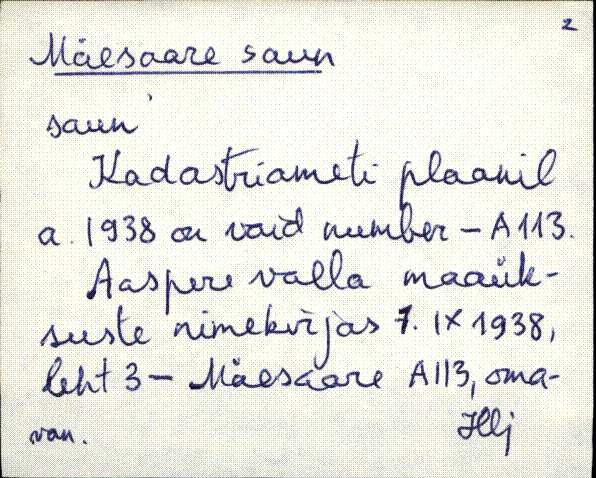 2
Mäesaare saun
saun
Kadastriameti plaanil
a. 1938 on vaid number – A 113.
Aaspere valla maaük-
suste nimekirjas 7. IX 1938,
leht 3 – Mäesaare A113, oma-
van.